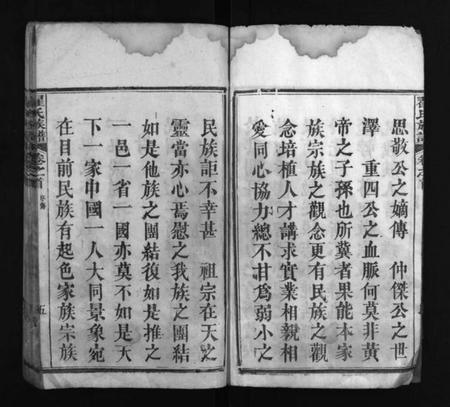 思敬公之嫡傳　仲傑公之世
澤　重四公之血脈何莫非黃
帝之子孫也所冀者果能本家
族宗族之觀念更有民族之觀
念培植人才講求實業相親相
愛同心協力總不甘為弱小之
民族詎不幸甚　祖宗在天之
靈當亦心焉慰之我族之團結
如是他族之團結復如是推之
一邑一省一國亦莫不如是天
下一家中國一人大同景象宛
在目前民族有起色家族宗族
翟氏族譜
卷之首
五